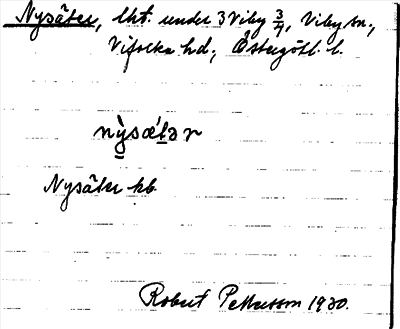 Nysäter, lht. under 3 Viby 3/4, Viby sn.,
Vifolka hd., Östergötl. l.
nỳsǽtər
Nysäter kb
Robert Pettersson 1930.